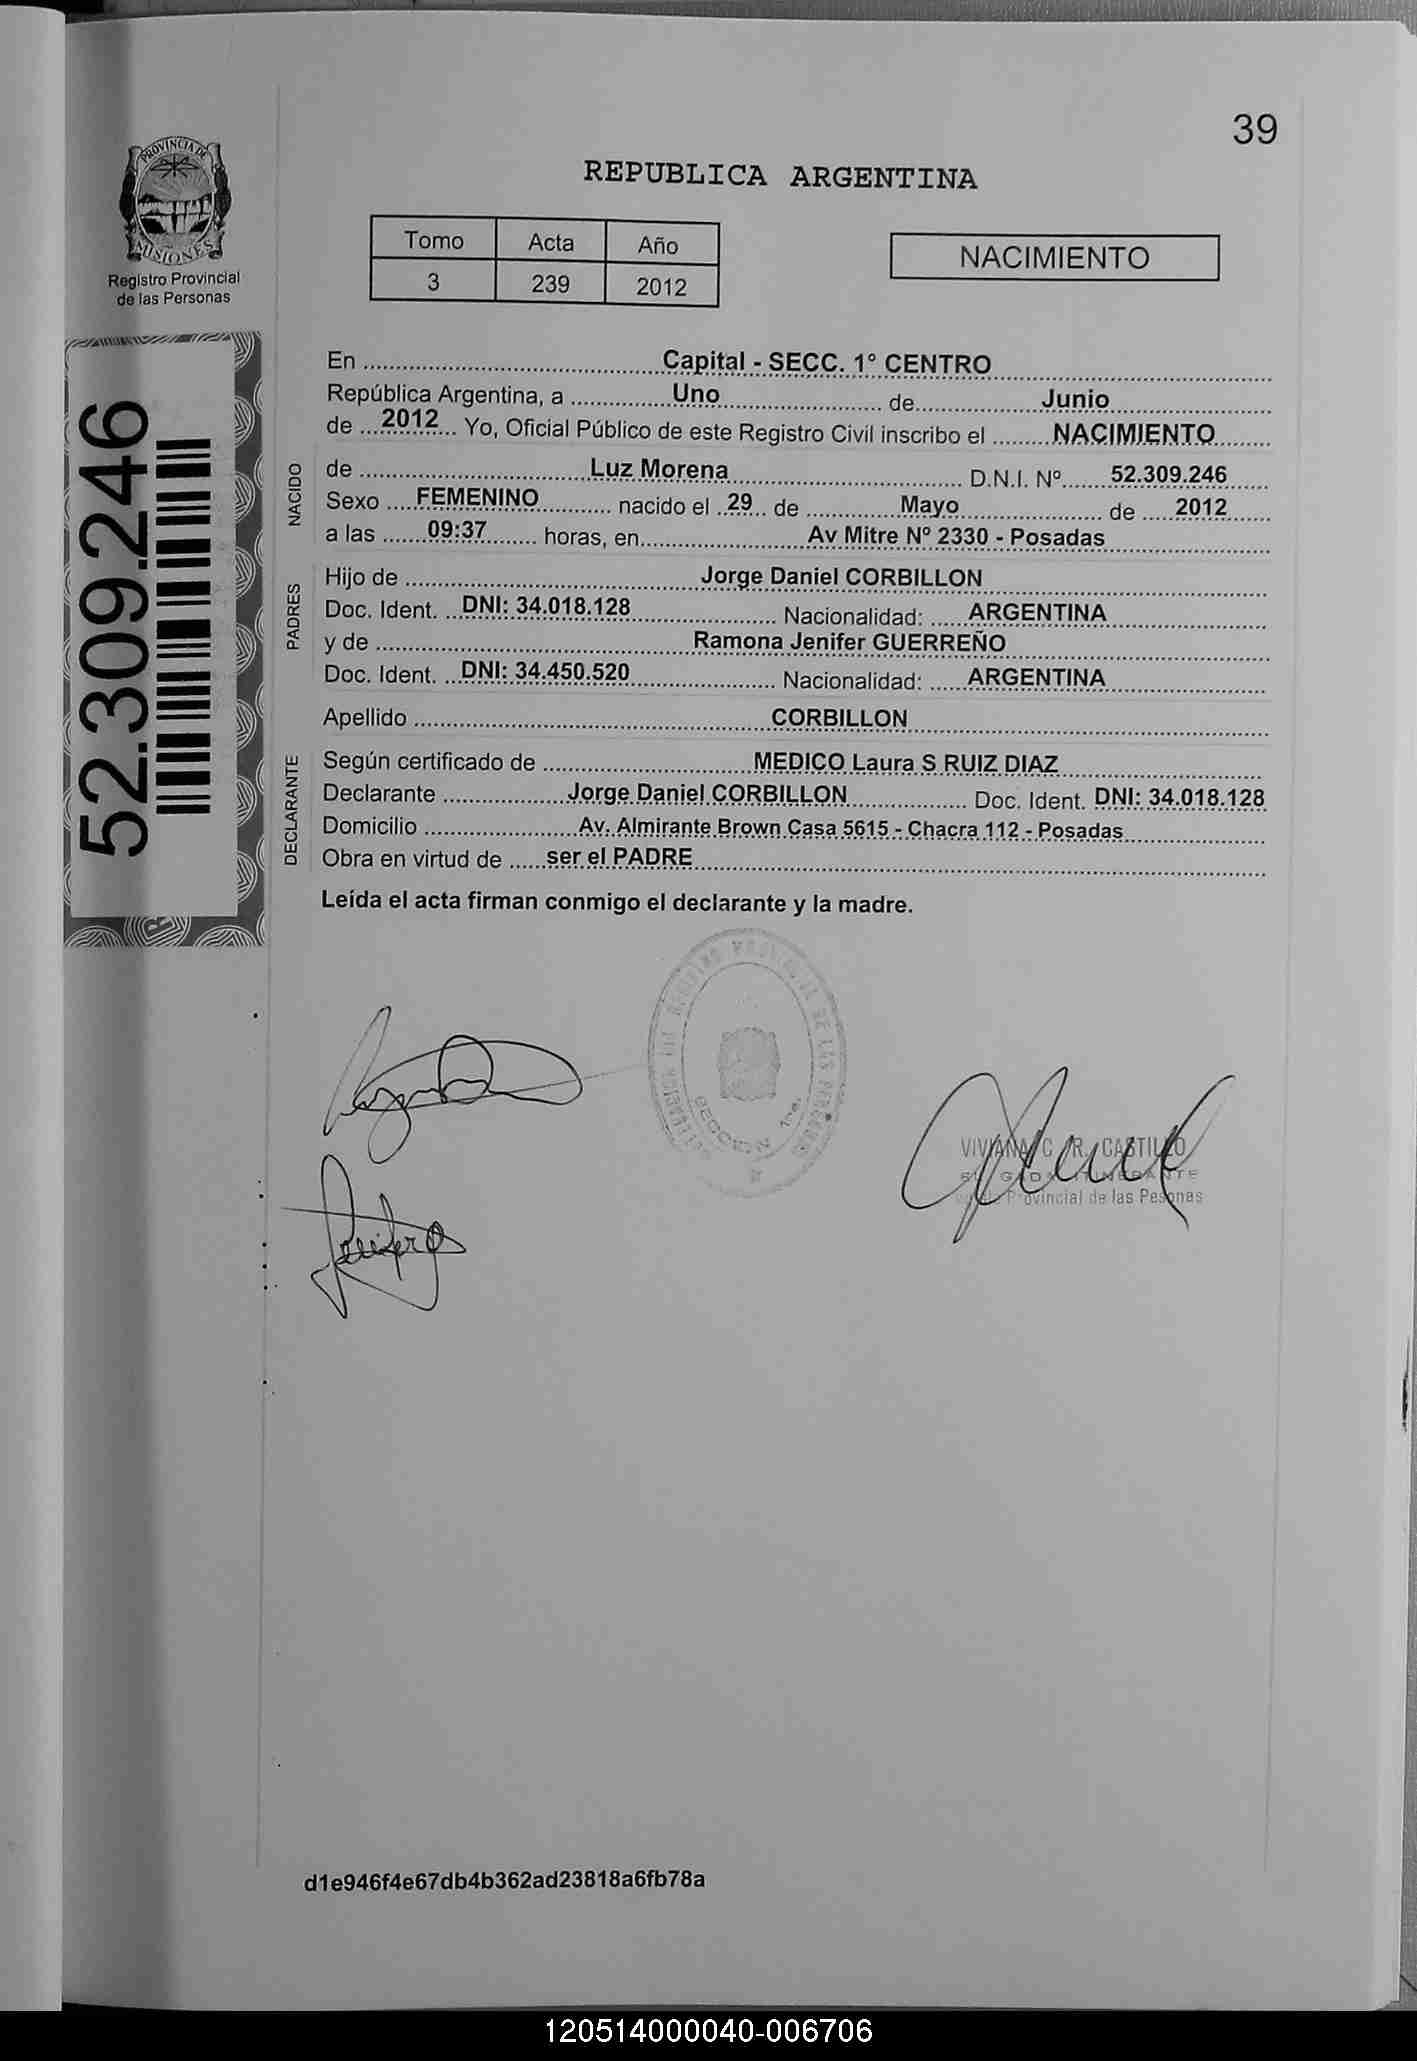 39
PROVINCIA DE
MISIONES
Registro Provincial
de las Personas
REPUBLICA ARGENTINA
Tomo Acta Año
3 239 2012
NACIMIENTO
52.309.246
En Capital - SECC. 1° CENTRO
República Argentina, a Uno de Junio
de 2012 Yo, Oficial Público de este Registro Civil inscribo el NACIMIENTO
NACIDO
de Luz Morena D.N.I. Nº 52.309.246
Sexo FEMENINO nacido el 29 de Mayo de 2012
a las 09:37 horas, en Av Mitre Nº 2330 - Posadas
PADRES
Hijo de Jorge Daniel CORBILLON
Doc. Ident. DNI: 34.018.128 Nacionalidad: ARGENTINA
y de Ramona Jenifer GUERREÑO
Doc. Ident. DNI: 34.450.520 Nacionalidad: ARGENTINA
Apellido CORBILLON
DECLARANTE
Según certificado de MEDICO Laura S RUIZ DIAZ
Declarante Jorge Daniel CORBILLON Doc. Ident. DNI: 34.018.128
Domicilio Av. Almirante Brown Casa 5615 - Chacra 112 - Posadas
Obra en virtud de ser el PADRE
Leída el acta firman conmigo el declarante y la madre.
SECCION 1ra.
VIVIANA C. R. CASTILLO
Provincial de las Pesonas
d1e946f4e67db4b362ad23818a6fb78a
120514000040-006706